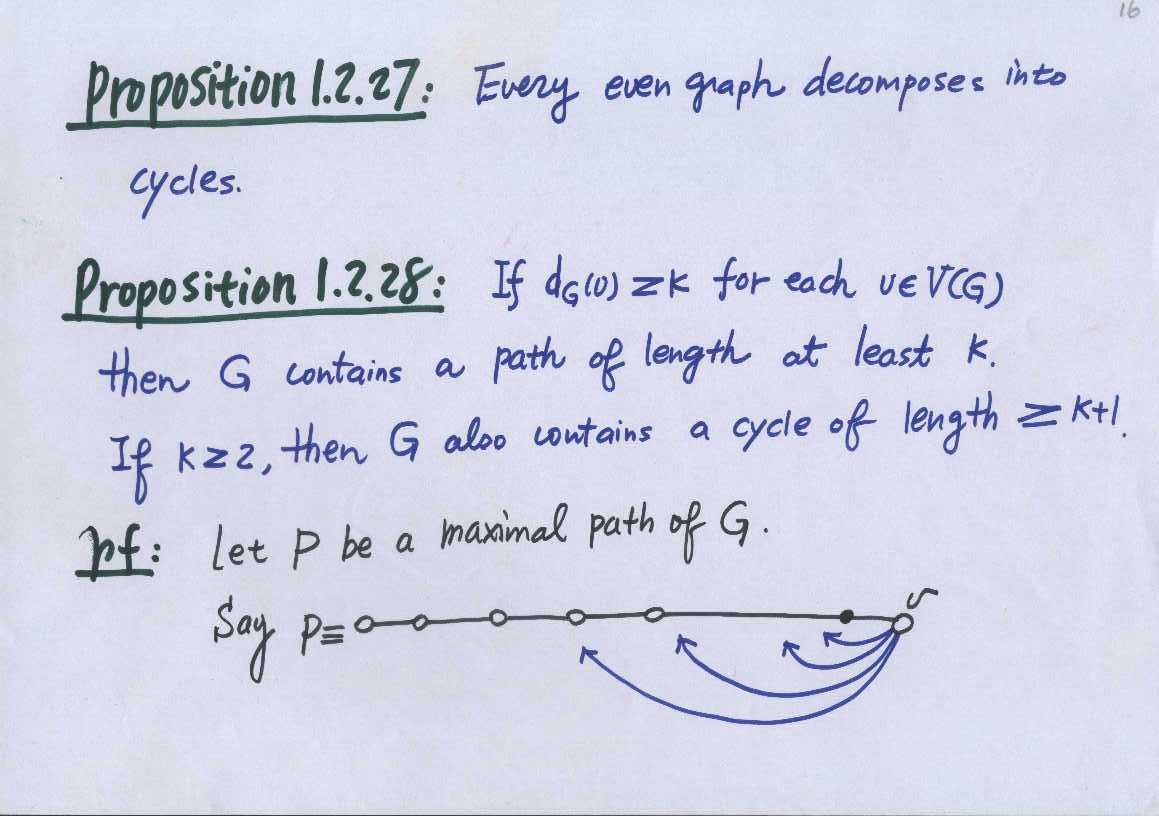 16
Proposition 1.2.27: Every even graph decomposes into
cycles.
Proposition 1.2.28: If d_G(v) ≥ k for each v ∈ V(G)
then G contains a path of length at least k.
If k ≥ 2, then G also contains a cycle of length ≥ k+1.
pf: Let P be a maximal path of G.
Say P ≡ v